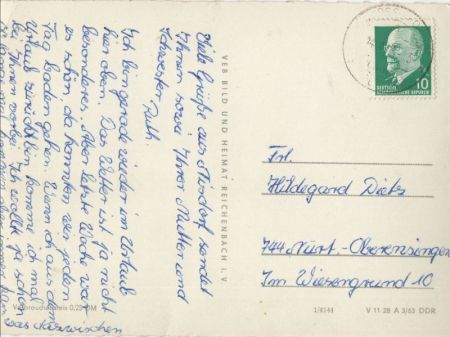 Viele Grüße aus Nordorf sendet
Ihnen sowie Ihrer Mutter und
Schwester Ruth.
Ich bin gerade wieder im Urlaub
hier oben. Das Wetter ist ja nicht
besonderes. Aber letzte Woche war
es schön, da konnten wir jeden
Tag baden gehen. Wenn ich aus dem
Urlaub zurück bin komme ich mal
bei Ihnen vorbei. Ich wollte ja schon
immer kam
was dazwischen
VEB BILD UND HEIMAT REICHENBACH I. V.
Verbraucherpreis 0,25 DM
10
DEUTSCHE
DEMOKRATISCHE REPUBLIK
Frl.
Hildegard Dietz
744 Nürt.-Oberensingen
Im Wiesengrund 10
1/4144
V 11 28 A 3/63 DDR